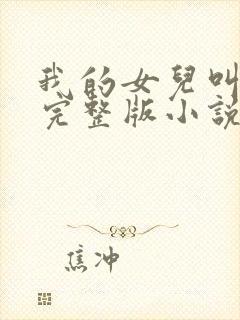 我的女兒叫
完整版小說
焦冲